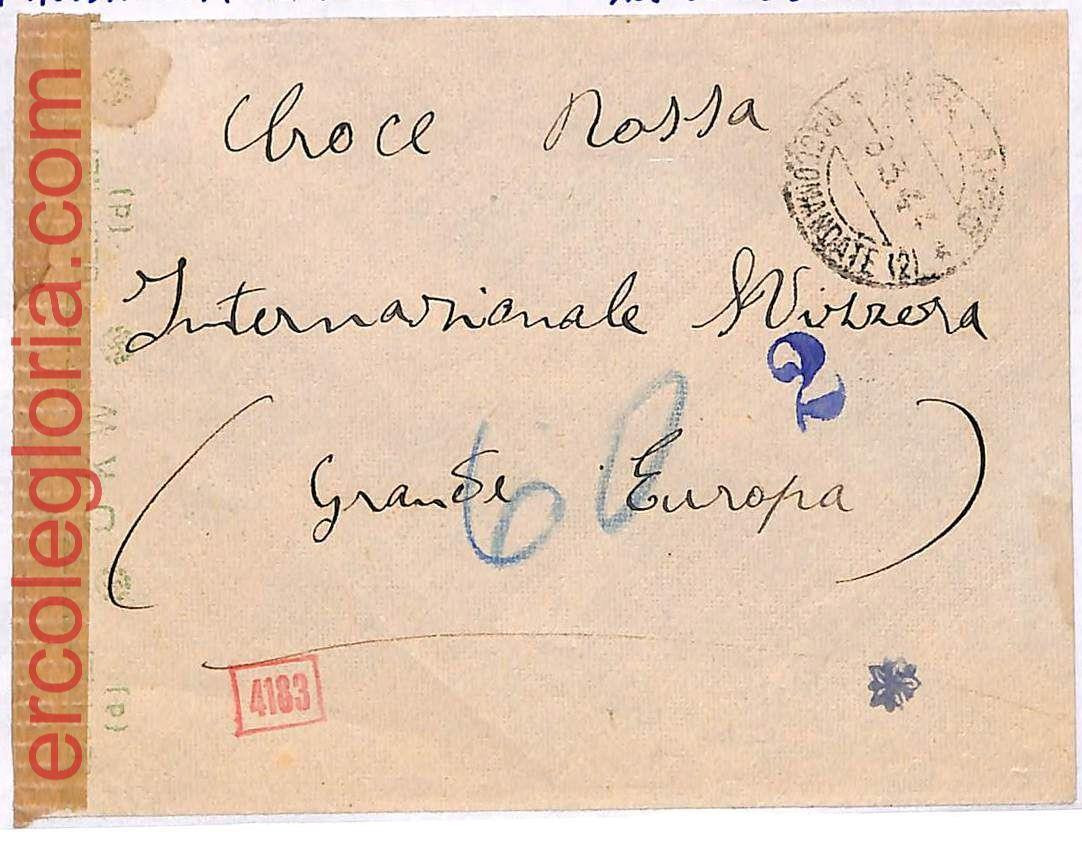 Croce Rossa
Internazionale SVizzera
(Grande Europa)
RACCOMANDATE (2)
2
60
4183
(d)
(d)
ercolegloria.com